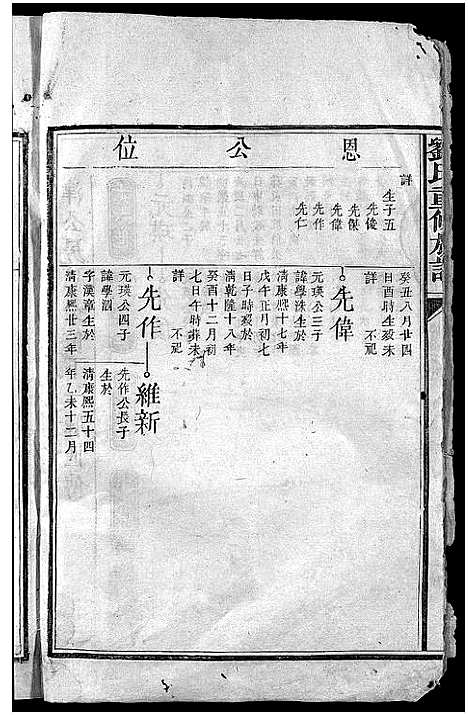 劉氏重修族譜
恩公位
詳
生子五
先俊
先保
先偉
先作
先仁
癸丑八月廿四
日酉時生殁未
詳 不祀
先偉
元瑛公三子
諱學洙生於
清康熙十七年
戊午正月初七
日子時殁於
清乾隆十八年
癸酉十二月初
七日午時葬未
詳 不祀
先作
元瑛公四子
諱學泗
字漢章生於
清康熙廿三年
維新
先作公長子
生於
清康熙五十四
年乙未十二月